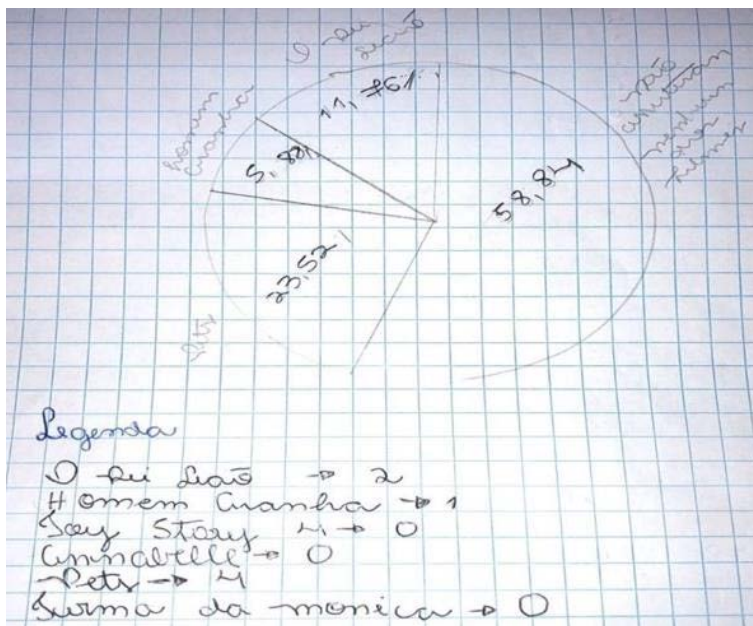 O Rei
Leão
11,761.
Homem
aranha
5,881,
não
assistiram
nenhum
dos
filmes
58,84
23,521
Pets
Legenda
O Rei Leão → 2
Homem Aranha → 1
Toy Story 4 → 0
Annabelle → 0
Pets → 4
Turma da monica → 0